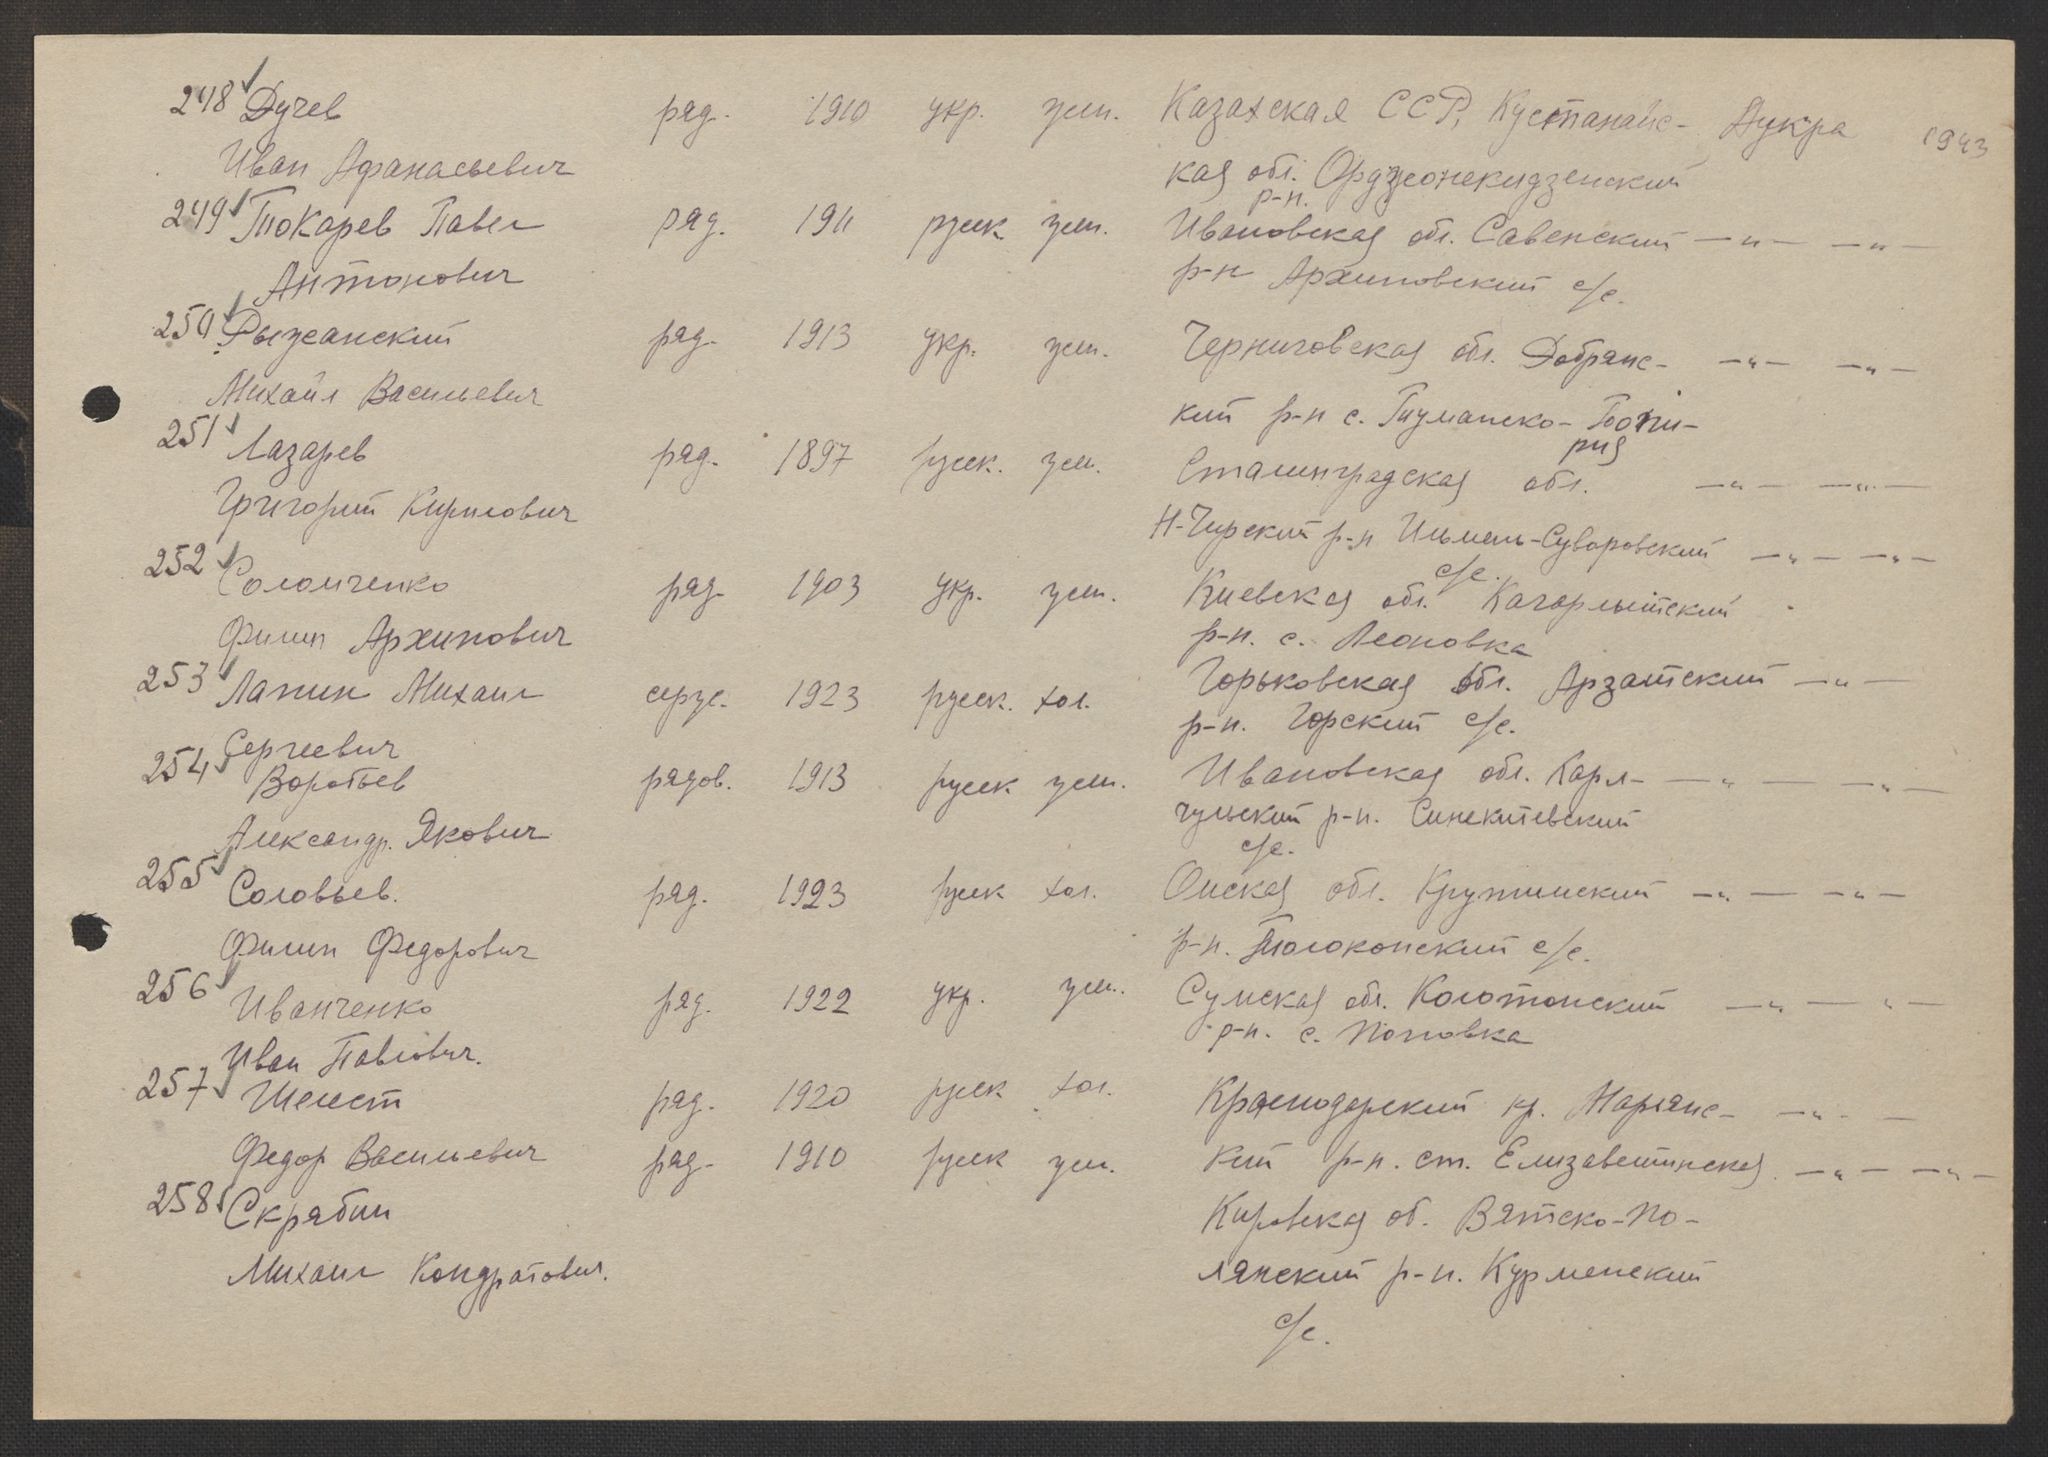 248 Дучев ряд. 1910 укр. жен. Казахская ССР, Кустанайс- Аукра 1943
Иван Афанасьевич кая обл. Орджонекидзенский
р-н.
249 Токарев Павел ряд. 1911 русск жен. Ивановская обл. Савенский —"— —"—
Антонович р-н Архиповский с/с.
250 Рыжанский ряд. 1913 укр. жен. Черниговская обл. Добрянс- —"— —"—
Михаил Васильевич кий р-н с.
251 Лазарев ряд. 1897 русск. жен. Сталинградская обл. —"— —"—
Григорий Кирилович Н-Чирский р-н Ильмень-Суворовский —"— —"—
с/с.
252 Соломченко ряд. 1903 укр. жен. Киевская обл. Кагарлыйский
Филип Архипович р-н. с. Леоновка
253 Лапин Михаил серж. 1923 русск. хол. Горьковская обл. Арзатский —"—
Сергеевич р-н. Горский с/с.
254 Воробьев рядов. 1913 русск жен. Ивановская обл. Карл- —"— —"—
Александр. Якович чульский р-н. Синекитевский
с/с.
255 Соловьев. ряд. 1923 русск хол. Омская обл. Крутинский —"— —"—
Филип Федорович р-н. Толоконский с/с.
256 Иванченко ряд. 1922 укр. жен. Сумская обл. Колотопский —"— "—
Иван Павлович. р-н. с. Поповка
257 Шелест ряд. 1920 русск хол. Краснодарский кр. Марьянс- —"— —
Федор Васильевич ряд. 1910 русск жен. кий р-н. ст. Елизаветинская. —"— —"—
258 Скрябин Кировская об. Вятско-По-
Михаил Кондратович. лянский р-н. Курменский
с/с.